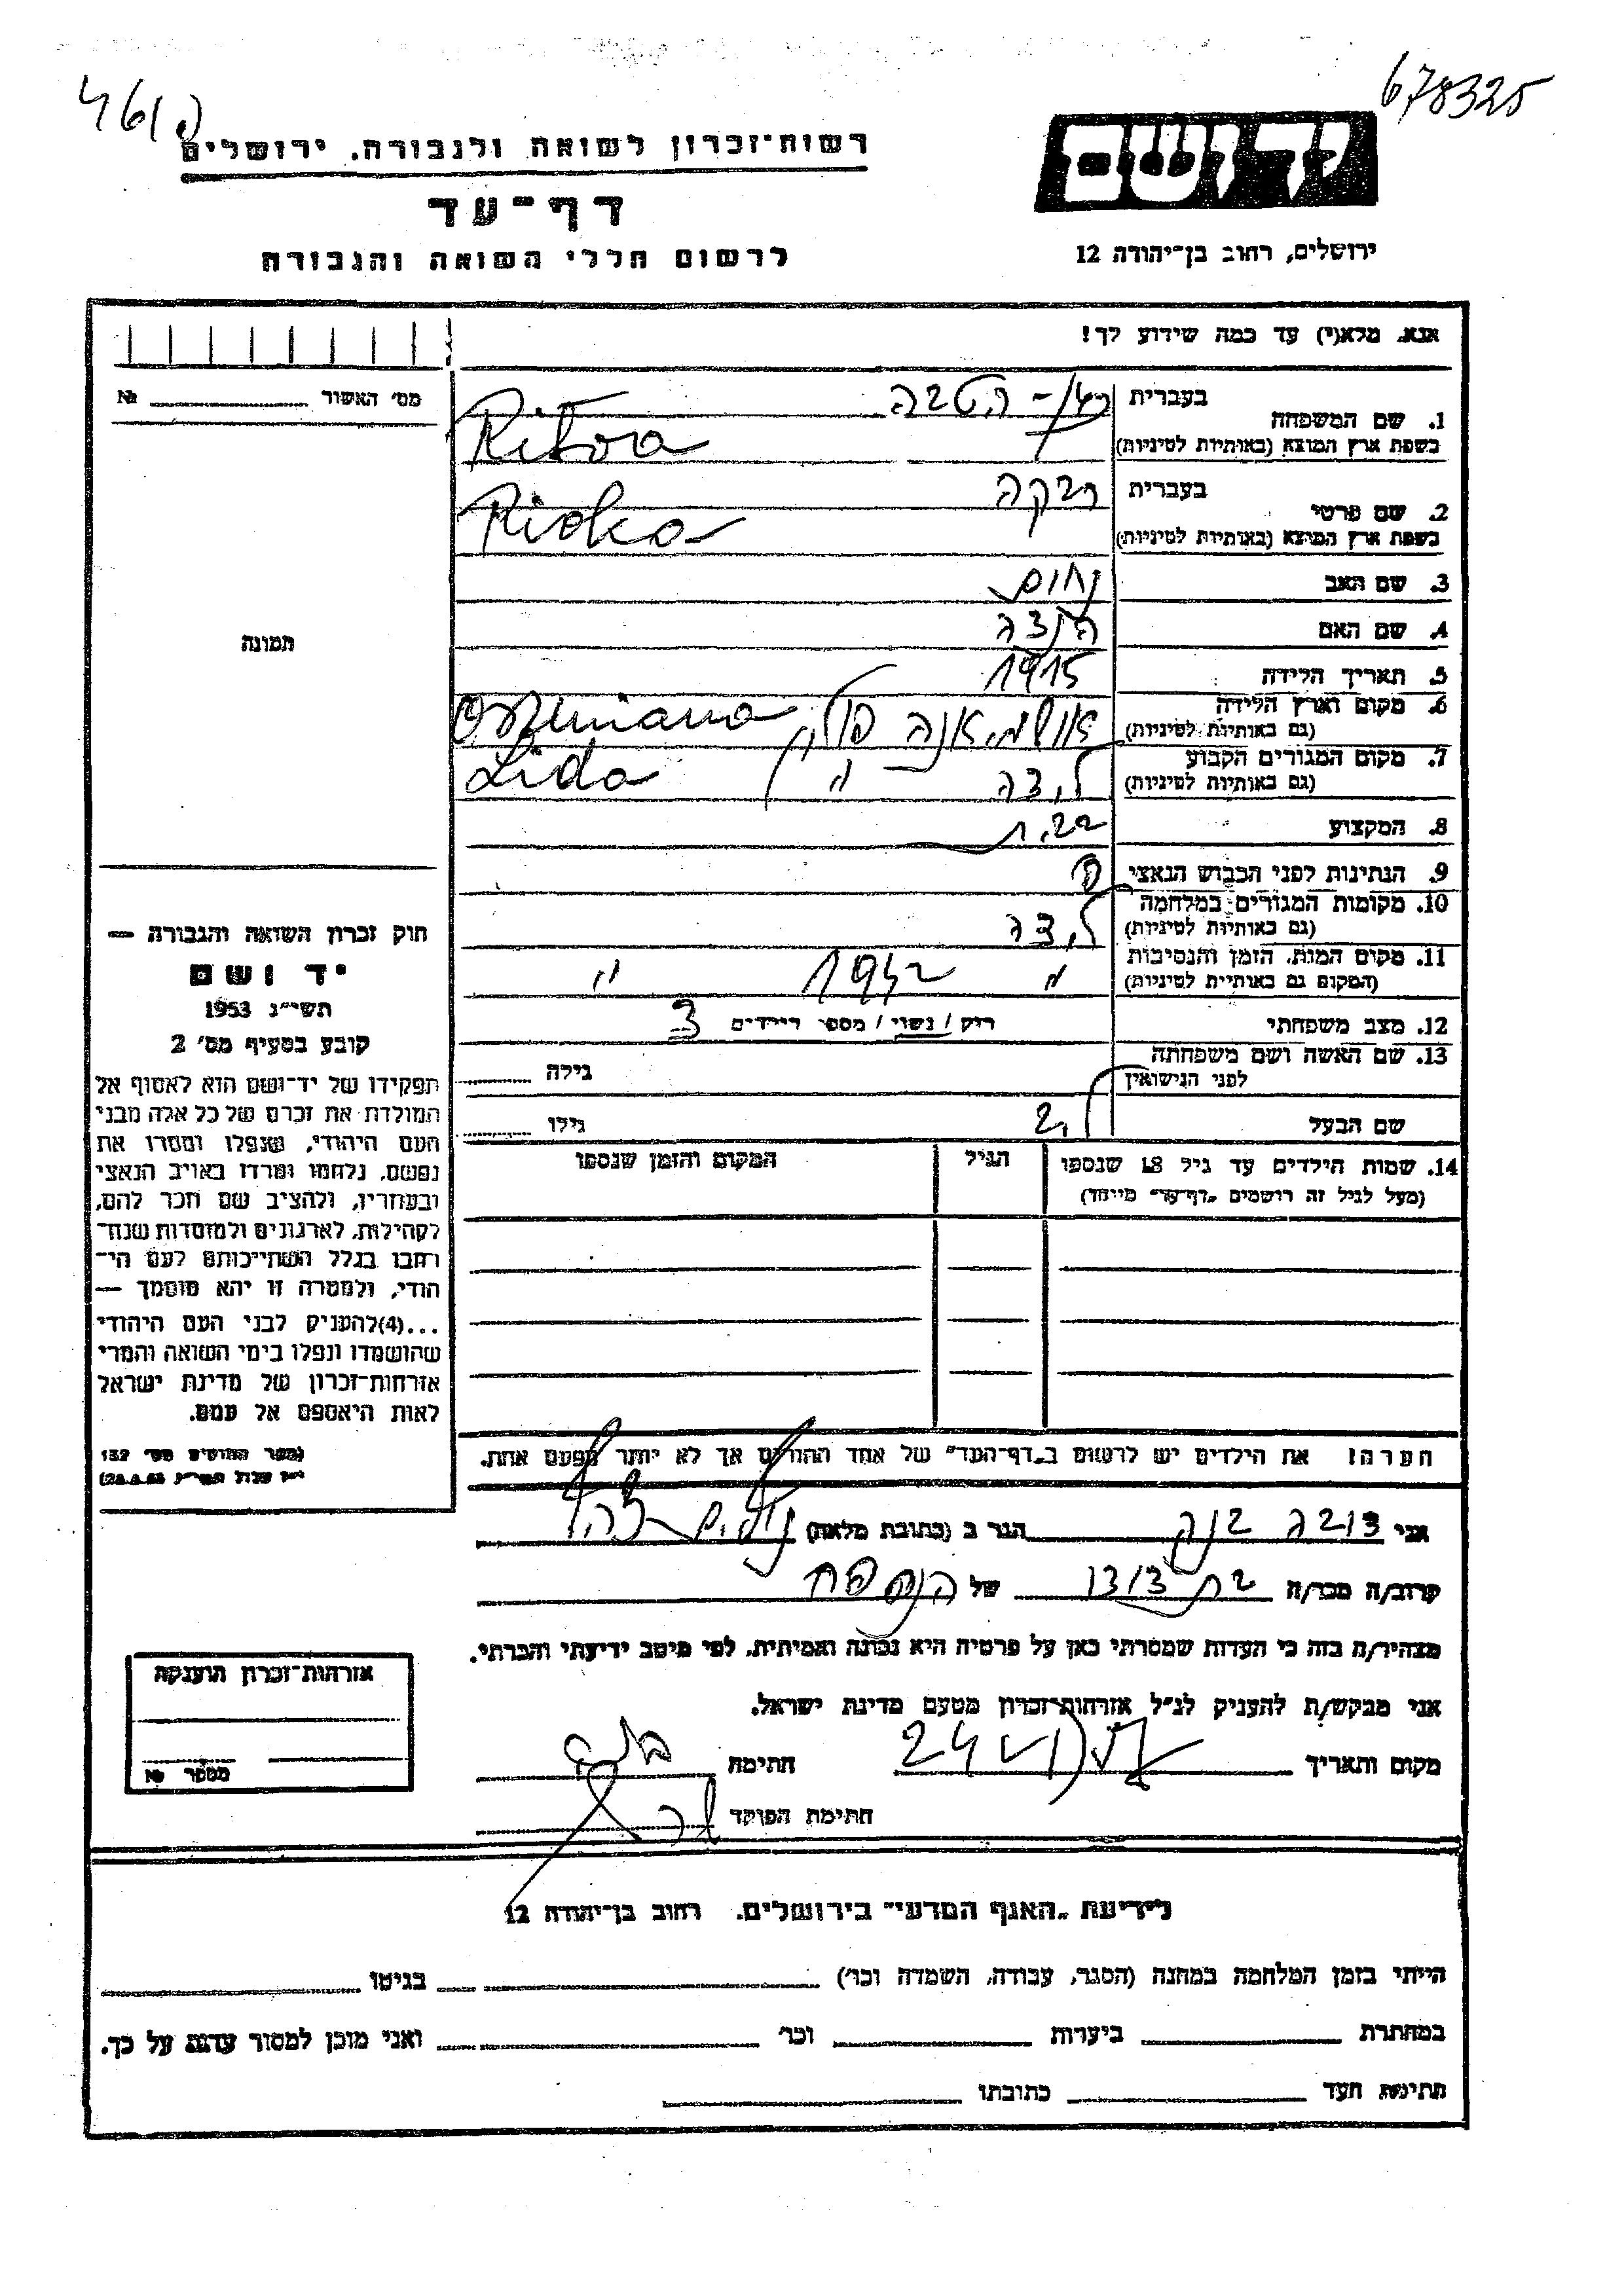 678325
רשות־זכרון לשואה ולגבורה. ירושלים
דף־עד
לרשום חללי השואה והגבורה
יד ושם
ירושלים, רחוב בן־יהודה 12
אנא. מלא(י) עד כמה שידוע לך!
מס' האשור № 
1. שם המשפחה בעברית
בשפת ארץ המוצא (באותיות לטיניות)
2. שם פרטי בעברית רבקה
בשפת ארץ המוצא (באותיות לטיניות) Rivka
3. שם האב נחום
4. שם האם
5. תאריך הלידה 1915
6. מקום וארץ הלידה אושמיאנה פולין Oszmiana
(גם באותיות לטיניות)
7. מקום המגורים הקבוע לידה " Lida
(גם באותיות לטיניות)
8. המקצוע
9. הנתינות לפני הכבוש הנאצי פ
10. מקומות המגורים במלחמה לידה
(גם באותיות לטיניות)
11. מקום המות, הזמן והנסיבות " 1942 "
(המקום גם באותיות לטיניות)
12. מצב משפחתי רווק / נשוי / מספר הילדים 3
13. שם האשה ושם משפחתה לפני הנישואין גילה
שם הבעל גילו
14. שמות הילדים עד גיל 18 שנספו הגיל המקום והזמן שנספו
(מעל לגיל זה רושמים "דף־עד" מיוחד)
הערה! את הילדים יש לרשום ב"דף־העד" של אחד ההורים אך לא יותר מפעם אחת.
תמונה
חוק זכרון השואה והגבורה —
יד ושם
תשי"ג 1953
קובע בסעיף מס' 2
תפקידו של יד־ושם הוא לאסוף אל
המולדת את זכרם של כל אלה מבני
העם היהודי, שנפלו ומסרו את
נפשם, נלחמו ומרדו באויב הנאצי
ובעוזריו, ולהציב שם וזכר להם,
לקהילות, לארגונים ולמוסדות שנח־
רבו בגלל השתייכותם לעם הי־
הודי, ולמטרה זו יהא מוסמך —
...(4)להעניק לבני העם היהודי
שהושמדו ונפלו בימי השואה והמרי
אזרחות־זכרון של מדינת ישראל
לאות היאספם אל עמם.
(ספר החוקים מס' 132
אני הגר ב (כתובת מלאה)
קרוב/ה מכר/ה בת דוד של הנספה
מצהיר/ה בזה כי העדות שמסרתי כאן על פרטיה היא נכונה ואמיתית, לפי מיטב ידיעתי והכרתי.
אני מבקש/ת להעניק לנ"ל אזרחות־זכרון מטעם מדינת ישראל.
מקום ותאריך חתימה
חתימת הפוקד
אזרחות־זכרון הוענקה
מספר №
לידיעת "האגף המדעי" בירושלים. רחוב בן־יהודה 12
הייתי בזמן המלחמה במחנה (הסגר, עבודה, השמדה וכו') בגיטו
במחתרת ביערות וכו' ואני מוכן למסור עדות על כך.
חתימת העד כתובתו